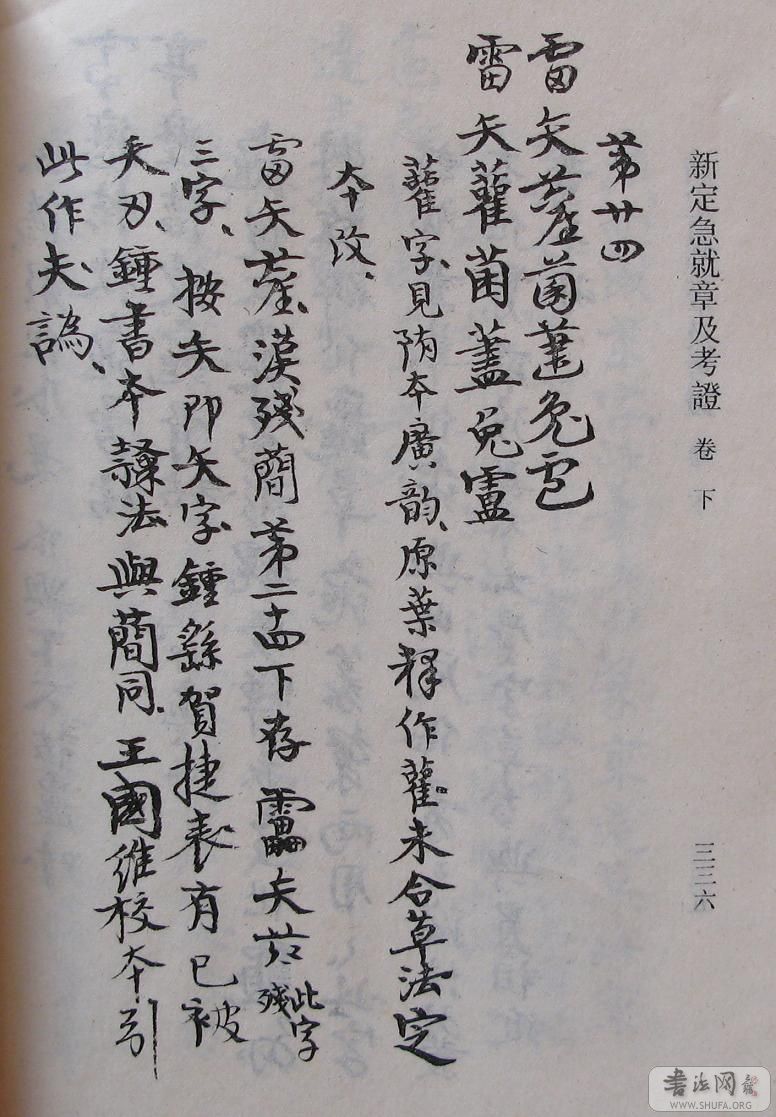 新定急就章及考證 卷下
三三六
第廿四
雷矢雚菌藎兔盧
雷矢雚菌藎兔盧
雚字見隋本廣韵、原葉釋作雚未合草法定
本改、
雷矢雚、漢殘簡第二十四下存靁矢 此字殘
三字、按矢即矢字、鍾繇賀捷表有已被
矢刃、鍾書本隸法、與簡同、王國維校本引
此作夫、譌、
書法网
WWW.SHUFA.ORG